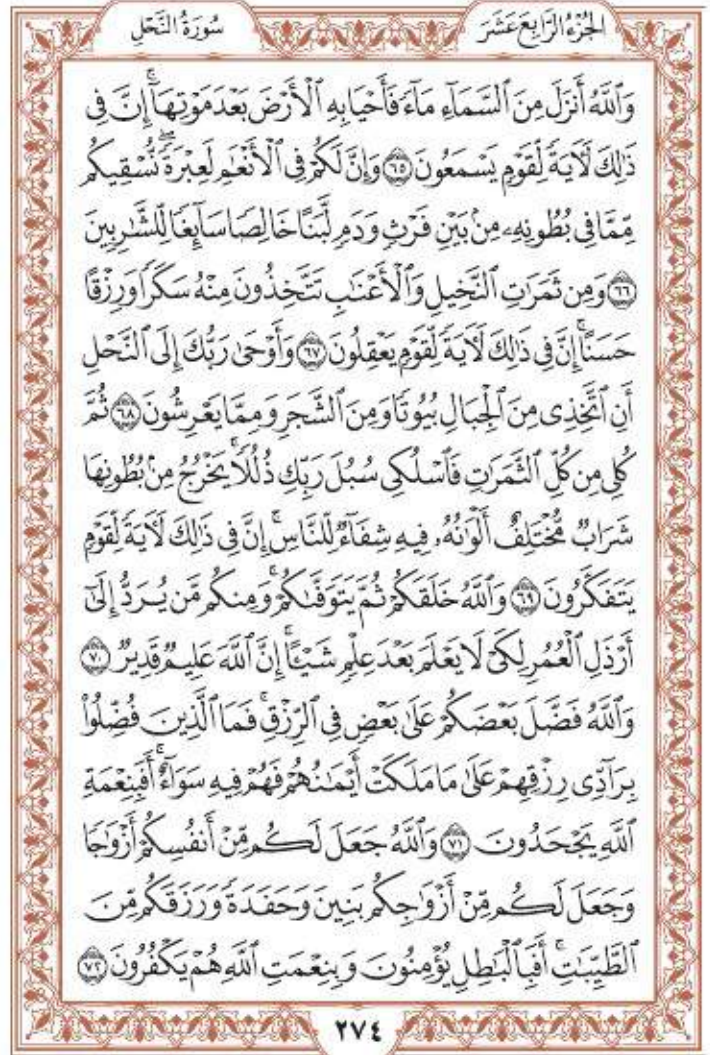 الجُزْءُ الرَّابِعَ عَشَرَ
سُورَةُ النَّحْلِ
وَٱللَّهُ أَنزَلَ مِنَ ٱلسَّمَآءِ مَآءٗ فَأَحۡيَا بِهِ ٱلۡأَرۡضَ بَعۡدَ مَوۡتِهَآۚ إِنَّ فِي
ذَٰلِكَ لَأٓيَةٗ لِّقَوۡمٖ يَسۡمَعُونَ ٦٥ وَإِنَّ لَكُمۡ فِي ٱلۡأَنۡعَٰمِ لَعِبۡرَةٗۖ نُّسۡقِيكُم
مِّمَّا فِي بُطُونِهِۦ مِنۢ بَيۡنِ فَرۡثٖ وَدَمٖ لَّبَنًا خَالِصٗا سَآئِغٗا لِّلشَّٰرِبِينَ
٦٦ وَمِن ثَمَرَٰتِ ٱلنَّخِيلِ وَٱلۡأَعۡنَٰبِ تَتَّخِذُونَ مِنۡهُ سَكَرٗا وَرِزۡقًا
حَسَنًاۚ إِنَّ فِي ذَٰلِكَ لَأٓيَةٗ لِّقَوۡمٖ يَعۡقِلُونَ ٦٧ وَأَوۡحَىٰ رَبُّكَ إِلَى ٱلنَّحۡلِ
أَنِ ٱتَّخِذِي مِنَ ٱلۡجِبَالِ بُيُوتٗا وَمِنَ ٱلشَّجَرِ وَمِمَّا يَعۡرِشُونَ ٦٨ ثُمَّ
كُلِي مِن كُلِّ ٱلثَّمَرَٰتِ فَٱسۡلُكِي سُبُلَ رَبِّكِ ذُلُلٗاۚ يَخۡرُجُ مِنۢ بُطُونِهَا
شَرَابٞ مُّخۡتَلِفٌ أَلۡوَٰنُهُۥ فِيهِ شِفَآءٞ لِّلنَّاسِۚ إِنَّ فِي ذَٰلِكَ لَأٓيَةٗ لِّقَوۡمٖ
يَتَفَكَّرُونَ ٦٩ وَٱللَّهُ خَلَقَكُمۡ ثُمَّ يَتَوَفَّىٰكُمۡۚ وَمِنكُم مَّن يُرَدُّ إِلَىٰٓ
أَرۡذَلِ ٱلۡعُمُرِ لِكَيۡ لَا يَعۡلَمَ بَعۡدَ عِلۡمٖ شَيۡـًٔاۚ إِنَّ ٱللَّهَ عَلِيمٞ قَدِيرٞ ٧٠
وَٱللَّهُ فَضَّلَ بَعۡضَكُمۡ عَلَىٰ بَعۡضٖ فِي ٱلرِّزۡقِۚ فَمَا ٱلَّذِينَ فُضِّلُواْ
بِرَآدِّي رِزۡقِهِمۡ عَلَىٰ مَا مَلَكَتۡ أَيۡمَٰنُهُمۡ فَهُمۡ فِيهِ سَوَآءٌۚ أَفَبِنِعۡمَةِ
ٱللَّهِ يَجۡحَدُونَ ٧١ وَٱللَّهُ جَعَلَ لَكُم مِّنۡ أَنفُسِكُمۡ أَزۡوَٰجٗا
وَجَعَلَ لَكُم مِّنۡ أَزۡوَٰجِكُم بَنِينَ وَحَفَدَةٗ وَرَزَقَكُم مِّنَ
ٱلطَّيِّبَٰتِۚ أَفَبِٱلۡبَٰطِلِ يُؤۡمِنُونَ وَبِنِعۡمَتِ ٱللَّهِ هُمۡ يَكۡفُرُونَ ٧٢
٢٧٤